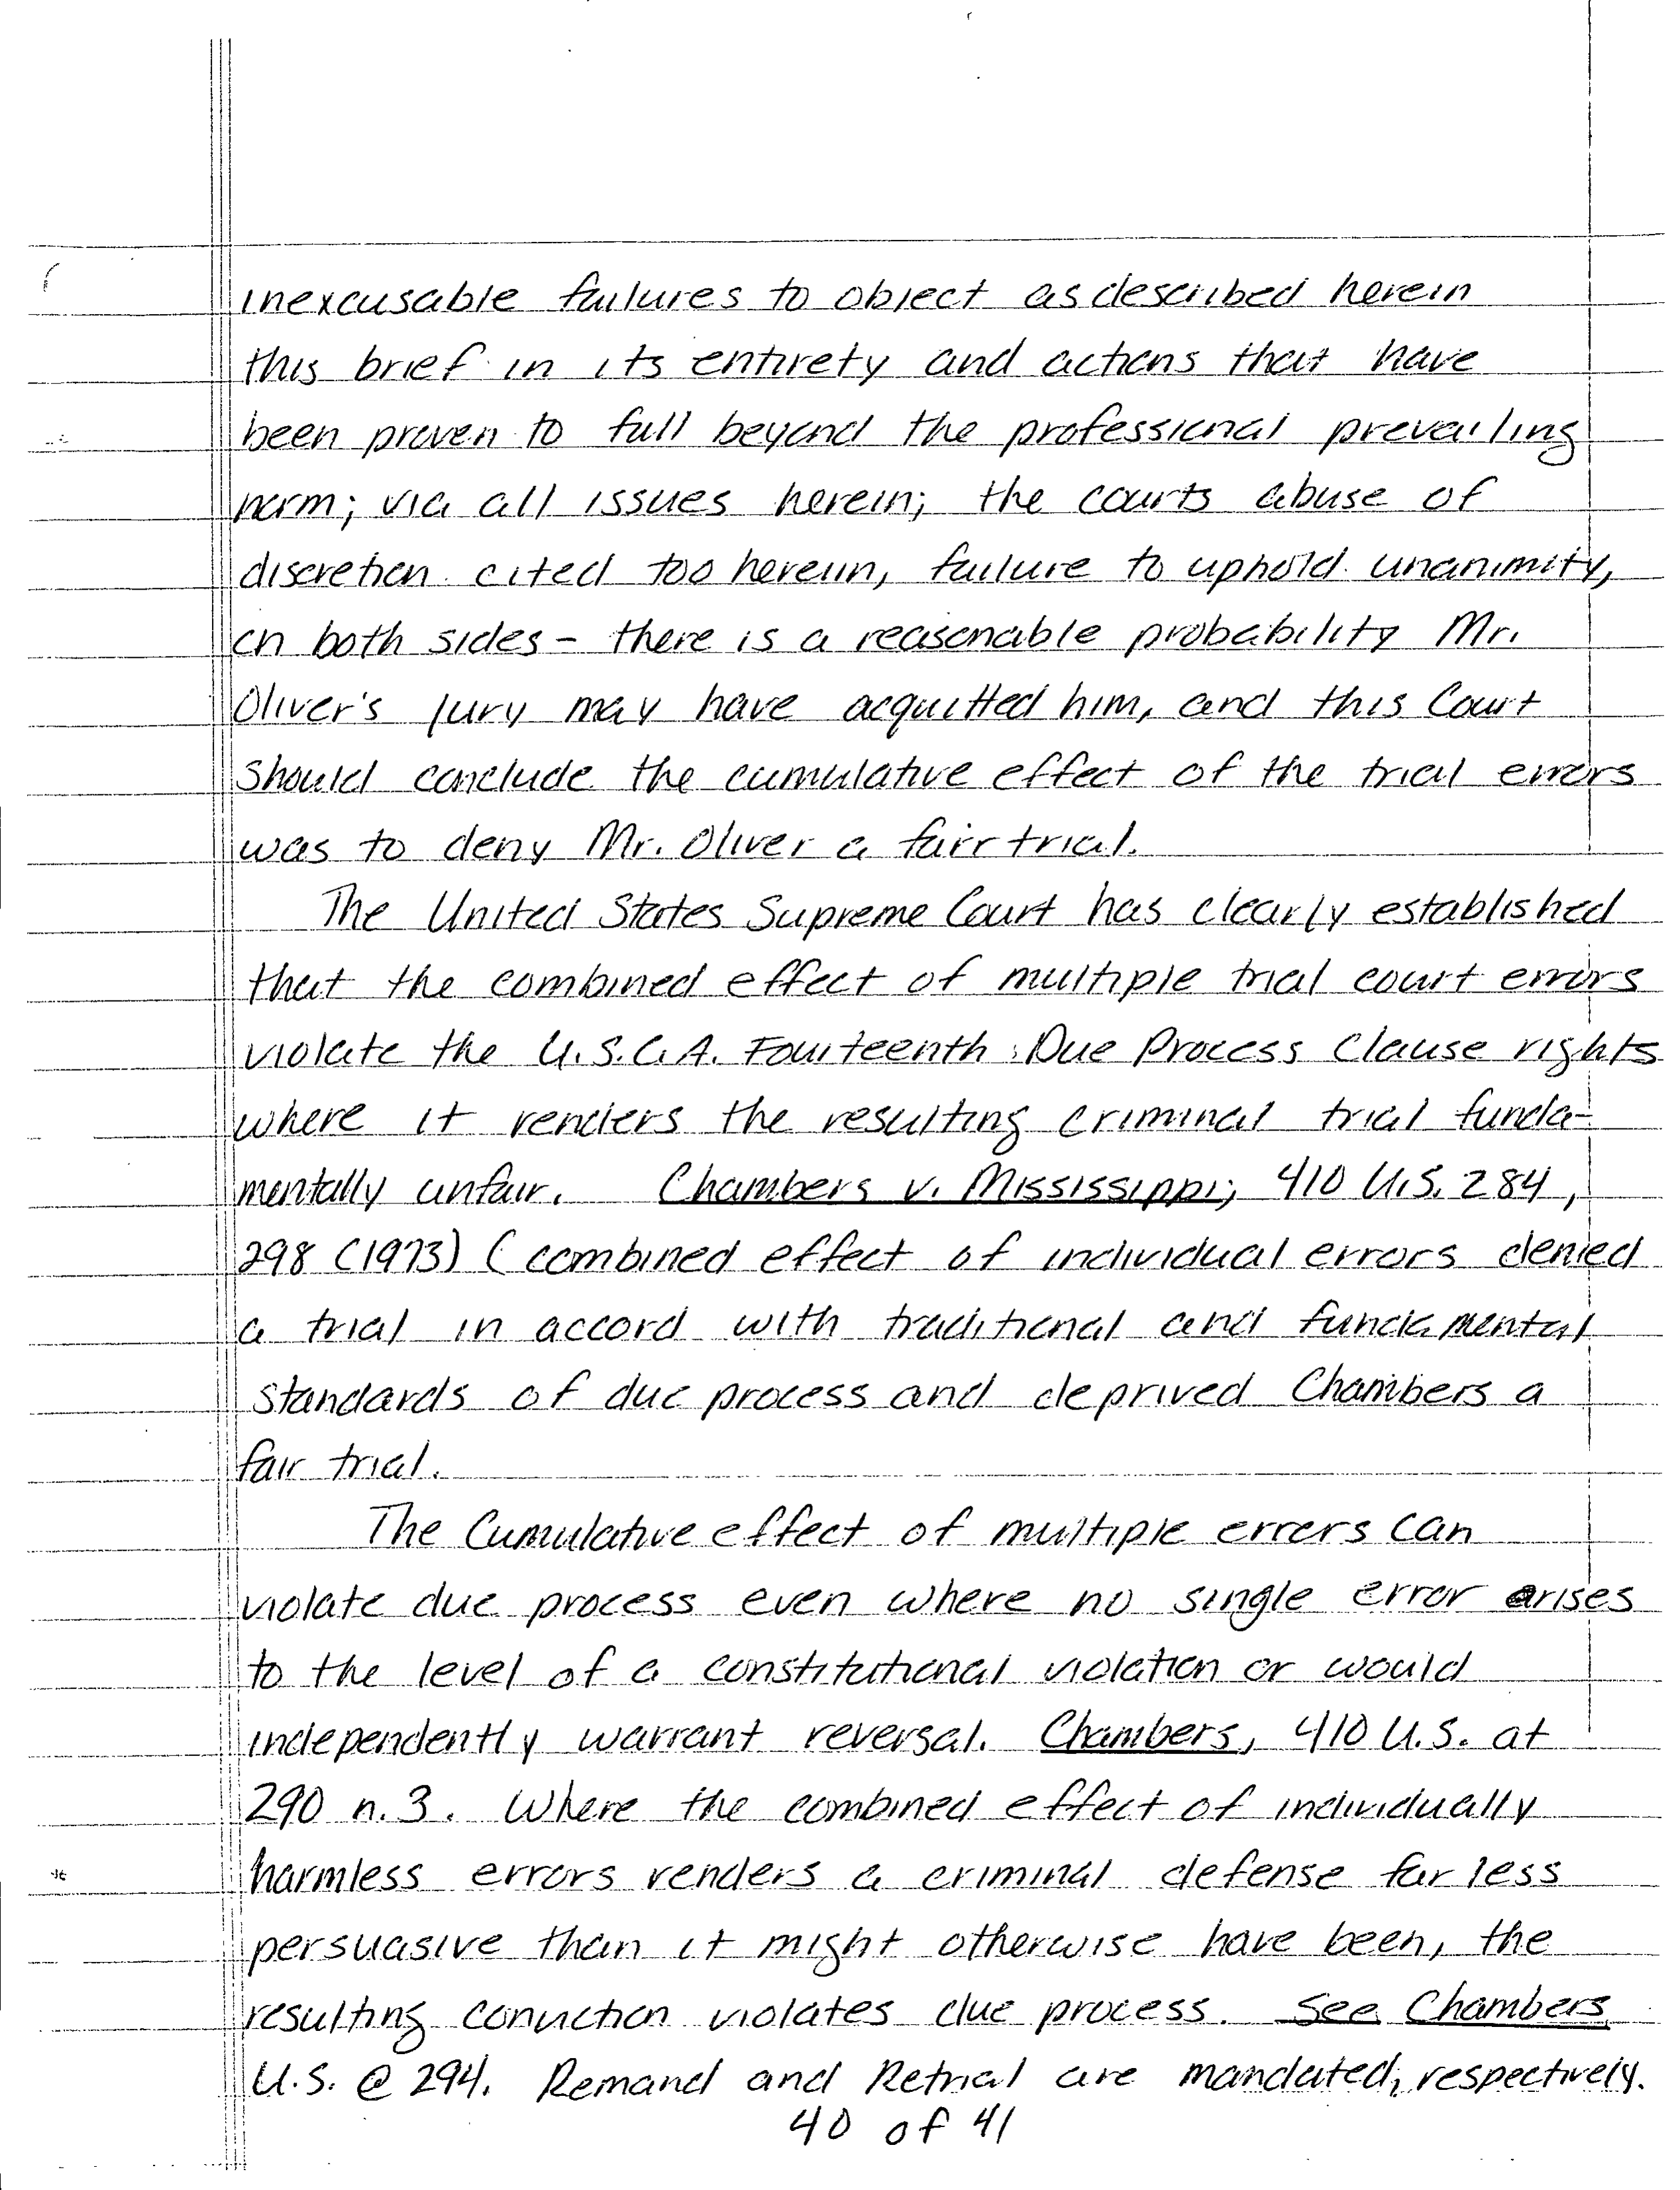 inexcusable failures to object as described herein
this brief in its entirety and actions that have
been proven to fall beyond the professional prevailing
norm; via all issues herein; the courts abuse of
discretion cited too herein, failure to uphold unanimity,
on both sides - there is a reasonable probability Mr.
Oliver's jury may have acquitted him, and this Court
should conclude the cumulative effect of the trial errors
was to deny Mr. Oliver a fair trial.
The United States Supreme Court has clearly established
that the combined effect of multiple trial court errors
violate the U.S.C.A. Fourteenth Due Process Clause rights
where it renders the resulting criminal trial funda-
mentally unfair. Chambers v. Mississippi, 410 U.S. 284,
298 (1973) (combined effect of individual errors denied
a trial in accord with traditional and fundamental
standards of due process and deprived Chambers a
fair trial.
The Cumulative effect of multiple errors can
violate due process even where no single error arises
to the level of a constitutional violation or would
independently warrant reversal. Chambers, 410 U.S. at
290 n.3. Where the combined effect of individually
harmless errors renders a criminal defense far less
persuasive than it might otherwise have been, the
resulting conviction violates due process. See Chambers,
U.S. @ 294. Remand and Retrial are mandated, respectively.
40 of 41